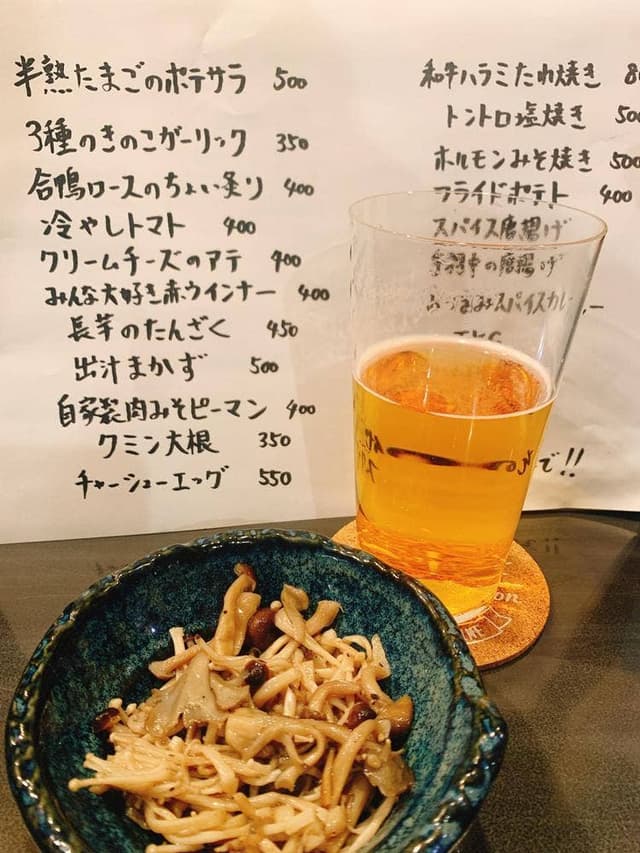 半熟たまごのポテサラ 500
3種のきのこガーリック 350
合鴨ロースのちょい炙り 400
冷やしトマト 400
クリームチーズのアテ 400
みんな大好き赤ウインナー 400
長芋のたんざく 450
出汁まかず 500
自家製肉みそピーマン 400
クミン大根 350
チャーシューエッグ 550
和牛ハラミたれ焼き
トントロ塩焼き 500
ホルモンみそ焼き 500
フライドポテト 400
スパイス唐揚げ
の唐揚げ
スパイスカレー
で!!